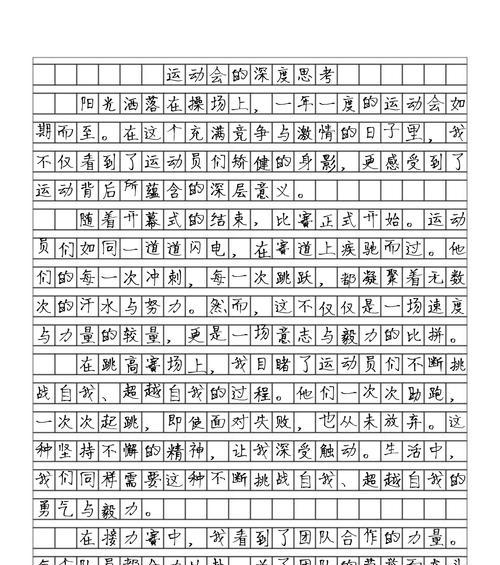 运动会的深度思考
阳光洒落在操场上，一年一度的运动会如
期而至。在这个充满竞争与激情的日子里，我
不仅看到了运动员们矫健的身影，更感受到了
运动背后所蕴含的深层意义。
随着开幕式的结束，比赛正式开始。运动
员们如同一道道闪电，在赛道上疾驰而过。他
们的每一次冲刺，每一次跳跃，都凝聚着无数
次的汗水与努力。然而，这不仅仅是一场速度
与力量的较量，更是一场意志与毅力的比拼。
在跳高赛场上，我目睹了运动员们不断挑
战自我、超越自我的过程。他们一次次助跑，
一次次起跳，即使面对失败，也从未放弃。这
种坚持不懈的精神，让我深受触动。生活中，
我们同样需要这种不断挑战自我、超越自我的
勇气与毅力。
在接力赛中，我看到了团队合作的力量。